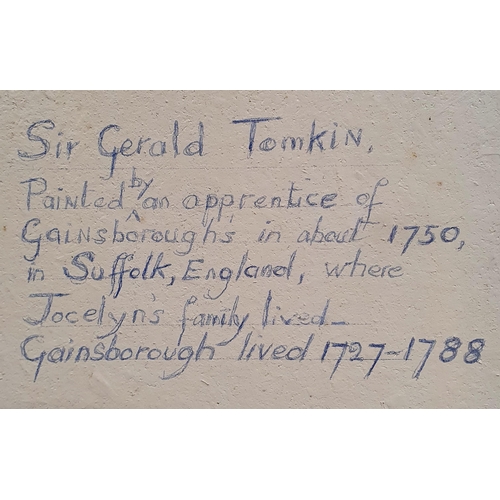 Sir Gerald Tomkin,
Painted by an apprentice of
Gainsborough's in about 1750,
in Suffolk, England, where
Jocelyn's family lived_
Gainsborough lived 1727-1788